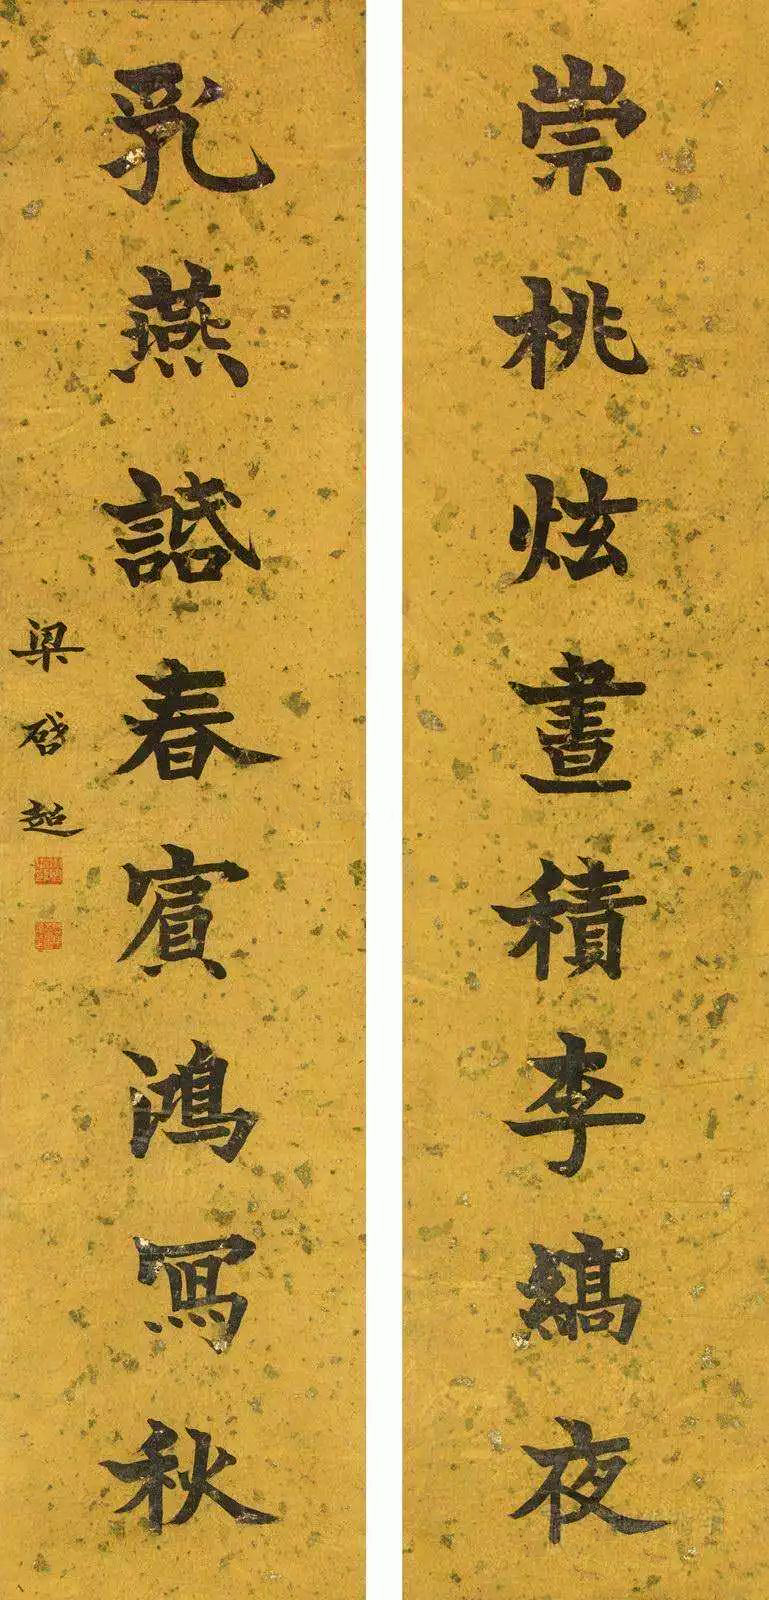 崇桃炫晝積李縞夜
乳燕話春賓鴻寫秋
梁啓超